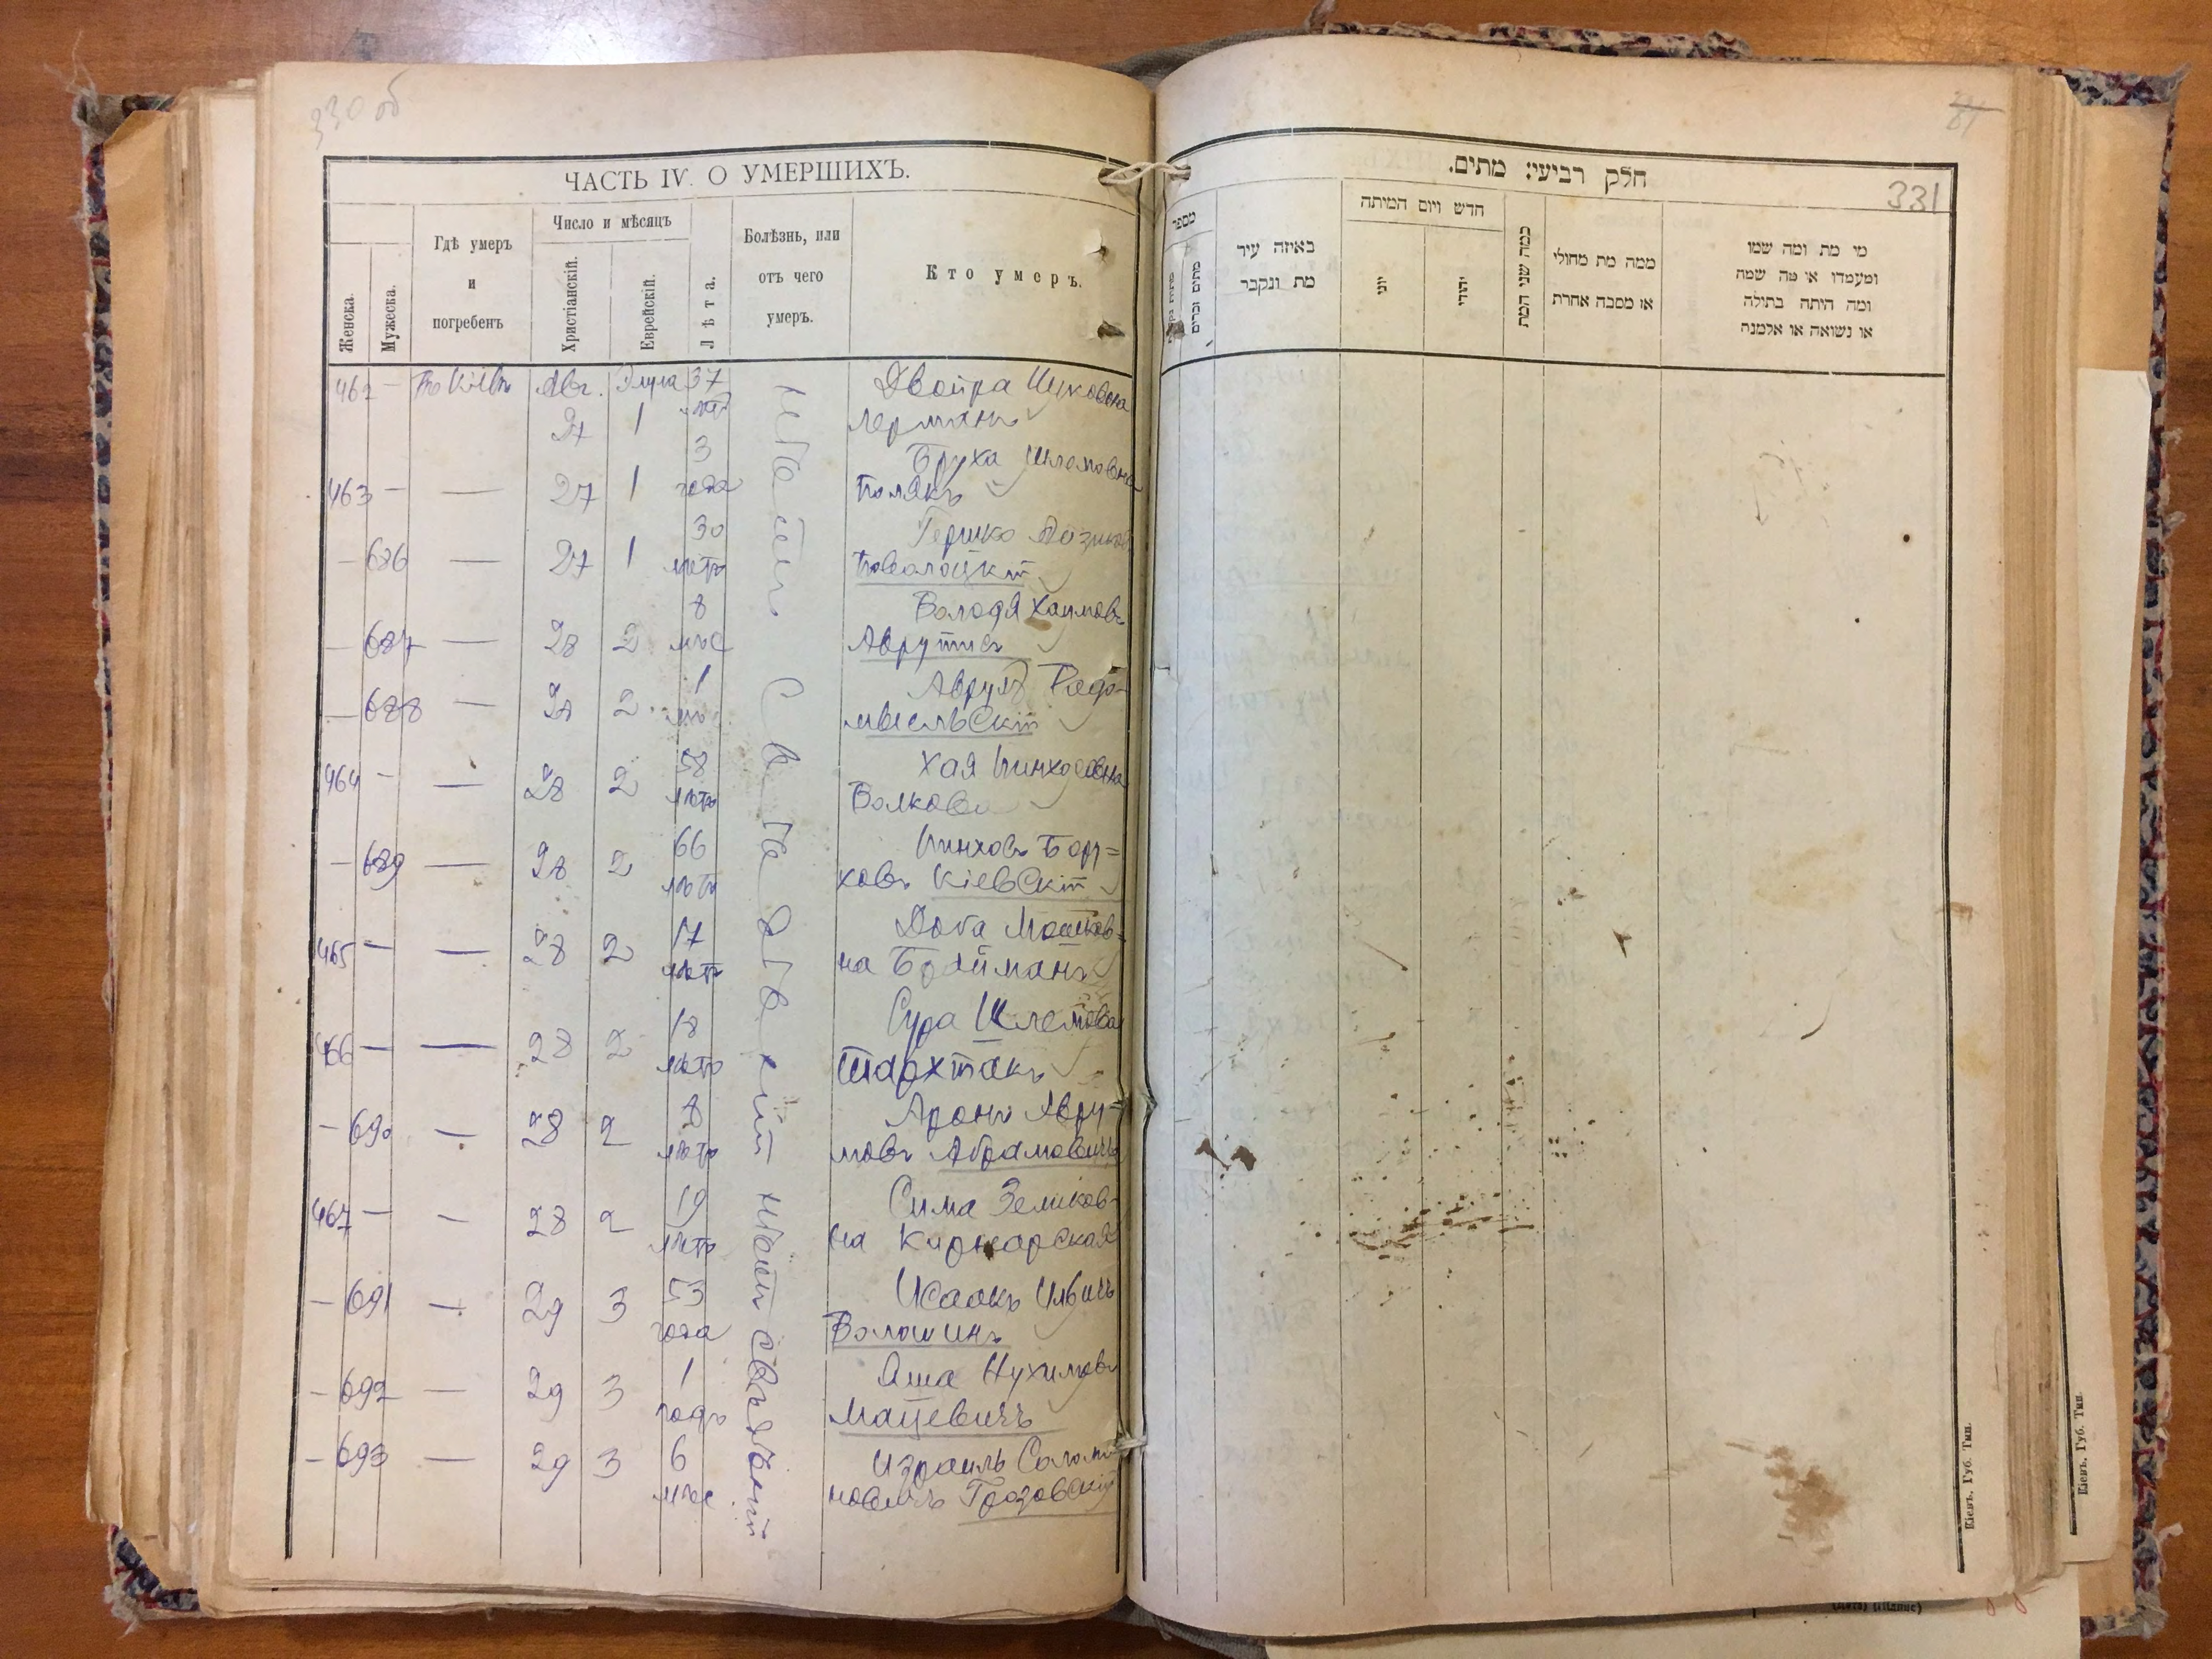 330 об
ЧАСТЬ IV. О УМЕРШИХЪ.
Женска.
Мужеска.
Гдѣ умеръ
и
погребенъ
Число и мѣсяцъ
Христіанскій.
Еврейскій.
Лѣта.
Болѣзнь, или
отъ чего
умеръ.
Кто умеръ.
462 — Въ Кіевѣ Авг. Элула 37 Двойра Ицковвна
27 1 лѣт Лерманъ
3 Бруха Шлемовна
463 — — 27 1 года Полякъ
30 Гершко
— 686 — 27 1 лѣтъ Поволоцкій
8 Володя Хаимовъ
— 687 — 28 2 мѣс Аврутисъ
1 Аврумъ Радо-
— 688 — 28 2 мѣс. мысльскій
58 Хая Пинхосовна
464 — — 28 2 лѣтъ Волкова
66 Пинхосъ Бору=
— 689 — 28 2 лѣтъ ховъ Кіевскій
17 Доба Мошков=
465 — — 28 2 лѣтъ на Бройманъ
18 Сура Шлемова
466 — — 28 2 лѣтъ Тархтакъ
8 Аронъ Авру-
— 690 — 28 2 лѣтъ мовъ Абрамовичъ
19 Сима Зеликов-
467 — — 28 2 лѣтъ на Каржарская
53 Исаакъ
— 691 — 29 3 года Волошинъ
1 Яша Нухимовъ
— 692 — 29 3 годъ Мацевичъ
6 Израиль Соломо
— 693 — 29 3 мѣс. новичъ Грозовскій
81
331
חלק רביעי: מתים.
מספר
מתים זכרים
באיזה עיר
מת ונקבר
חדש ויום המיתה
יוני
יהודי
כמה שני המת
ממה מת מחולי
או מסבה אחרת
מי מת ומה שמו
ומעמדו או מה שמה
ומה היתה בתולה
או נשואה או אלמנה
Кіевъ, Губ. Тип.
Кіевъ, Губ. Тип.